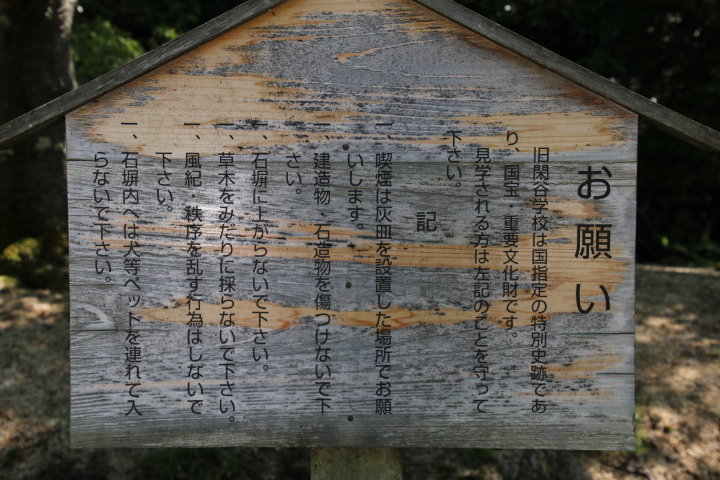 お願い
旧閑谷学校は国指定の特別史跡であ
り、国宝・重要文化財です。
見学される方は左記のことを守って
下さい。
記
一、喫煙は灰皿を設置した場所でお願
いします。
、建造物・石造物を傷つけないで下
さい。
、石塀に上がらないで下さい。
、草木をみだりに採らないで下さい。
一、風紀 秩序を乱す行為はしないで
下さい
一、石塀内へは犬等ペットを連れて入
らないで下さい。